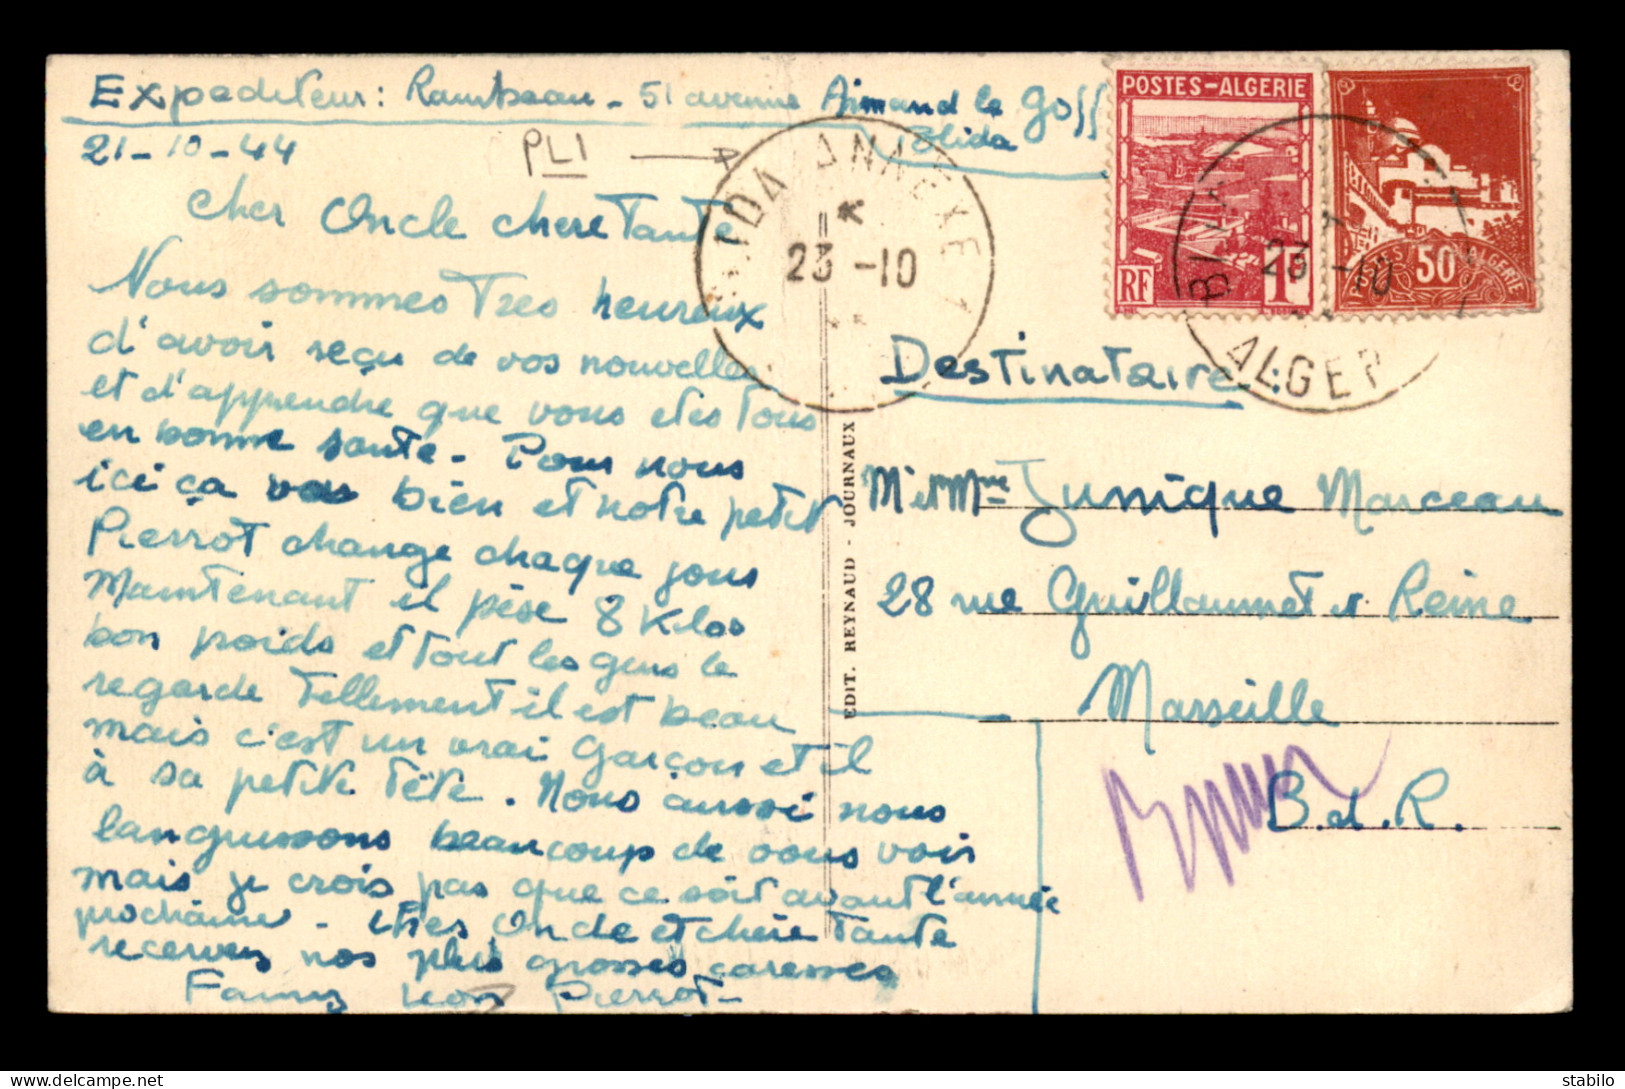 Expediteur: Rambeau - 51 avenue Armand le Goff
Blida
21-10-44
PLI
Cher Oncle chere Tante
Nous sommes Tres heureux
d'avoir reçu de vos nouvelles
et d'apprendre que vous etes tous
en bonne sante - Pour nous
ici ça va bien et notre petit
Pierrot change chaque jour
Maintenant il pèse 8 Kilos
bon poids et tout les gens le
regarde Tellement il est beau
mais c'est un vrai Garçon et il
à sa petite tête. Nous aussi nous
languissons beaucoup de vous voir
mais je crois pas que ce soit avant l'année
prochaine - Chers Oncle et chère Tante
recevez nos plus grosses caresses
Fanny Leon Pierrot -
BLIDA ANNEXE 1
23 -10
EDIT. REYNAUD - JOURNAUX
POSTES-ALGERIE
RF
1F
50c
POSTES ALGERIE
BLIDA
23 -10
ALGER
Destinataire:
Mr et Mme Junique Marceau
28 rue Guillaumet St Reine
Marseille
B.d.R.
stabilo